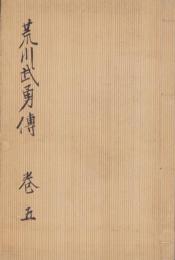 荒川武勇傳 巻五